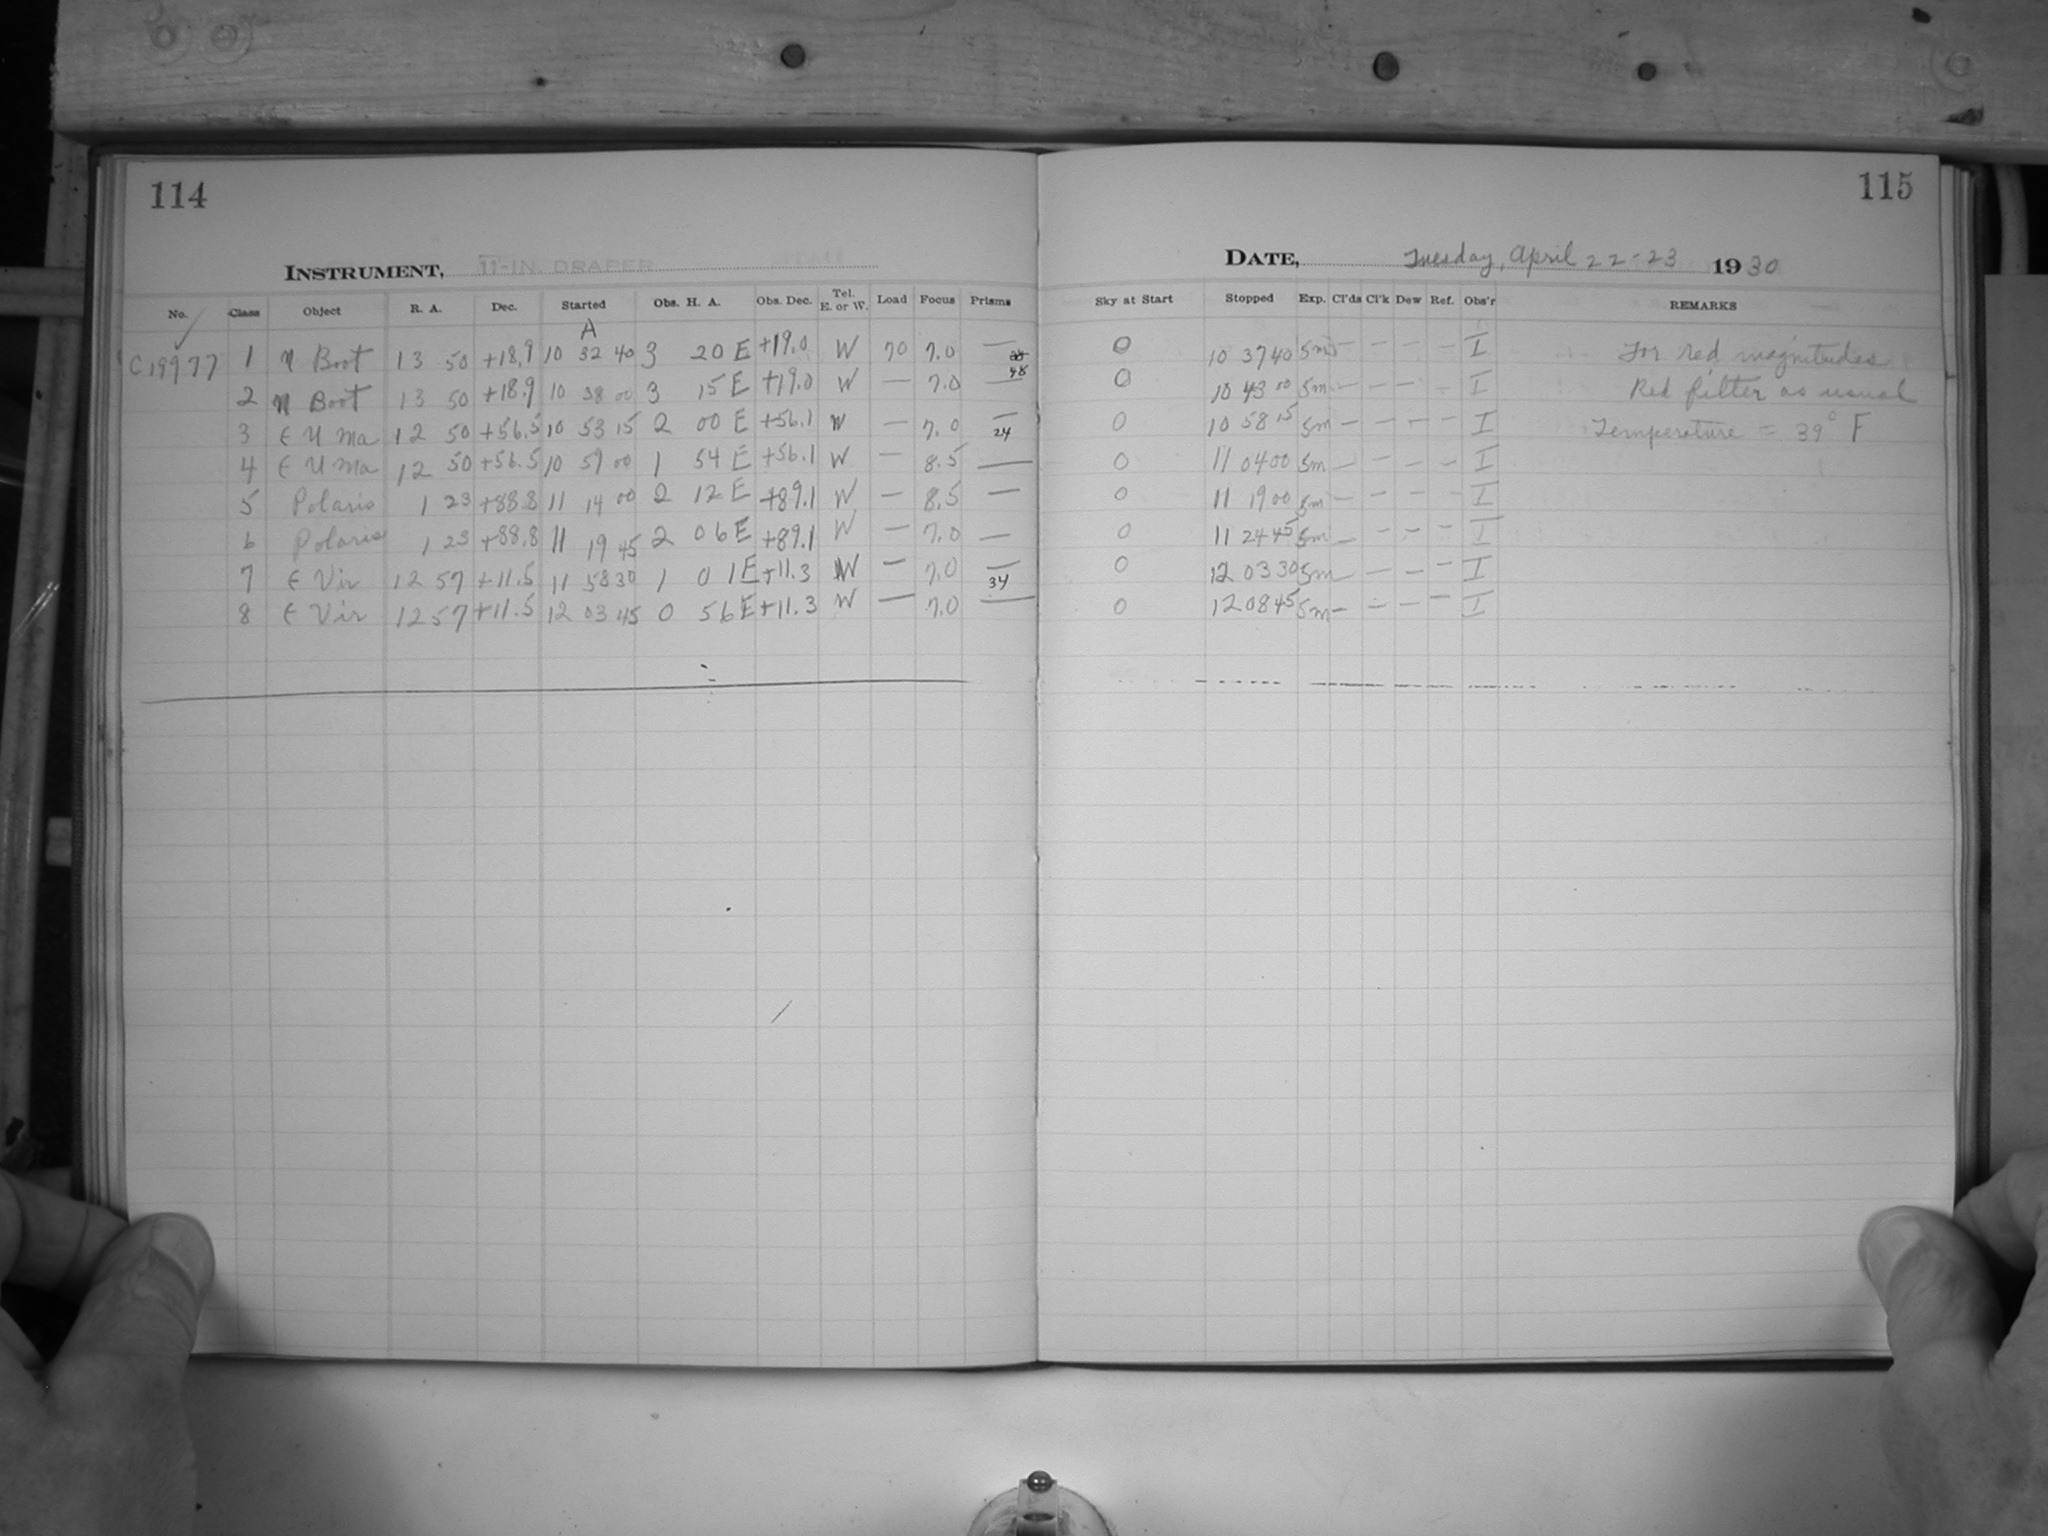 114
INSTRUMENT, 11-IN. DRAPER
No. Class Object R. A. Dec. Started Obs. H. A. Obs. Dec. Tel. E. or W. Load Focus Prisms
A
C19977 1 η Boot 13 50 +18.9 10 32 40 3 20 E +19.0 W 70 7.0 —
48
2 η Boot 13 50 +18.9 10 38 00 3 15 E +19.0 W — 7.0 —
3 ε U Ma 12 50 +56.5 10 53 15 2 00 E +56.1 W — 7.0 —
24
4 ε U Ma 12 50 +56.5 10 59 00 1 54 E +56.1 W — 8.5 —
5 Polaris 1 23 +88.8 11 14 00 2 12 E +89.1 W — 8.5 —
6 Polaris 1 23 +88.8 11 19 45 2 06 E +89.1 W — 7.0 —
7 ε Vir 12 57 +11.5 11 58 30 1 01 E +11.3 W — 7.0 —
34
8 ε Vir 12 57 +11.5 12 03 45 0 56 E +11.3 W — 7.0 —
115
DATE, Tuesday, April 22-23 1930
Sky at Start Stopped Exp. Cl'ds Cl'k Dew Ref. Obs'r REMARKS
0 10 37 40 5m — — — — I For red magnitudes
0 10 43 00 5m — — — — I Red filter as usual
0 10 58 15 5m — — — — I Temperature = 39° F
0 11 04 00 5m — — — — I
0 11 19 00 5m — — — — I
0 11 24 45 5m — — — — I
0 12 03 30 5m — — — — I
0 12 08 45 5m — — — — I